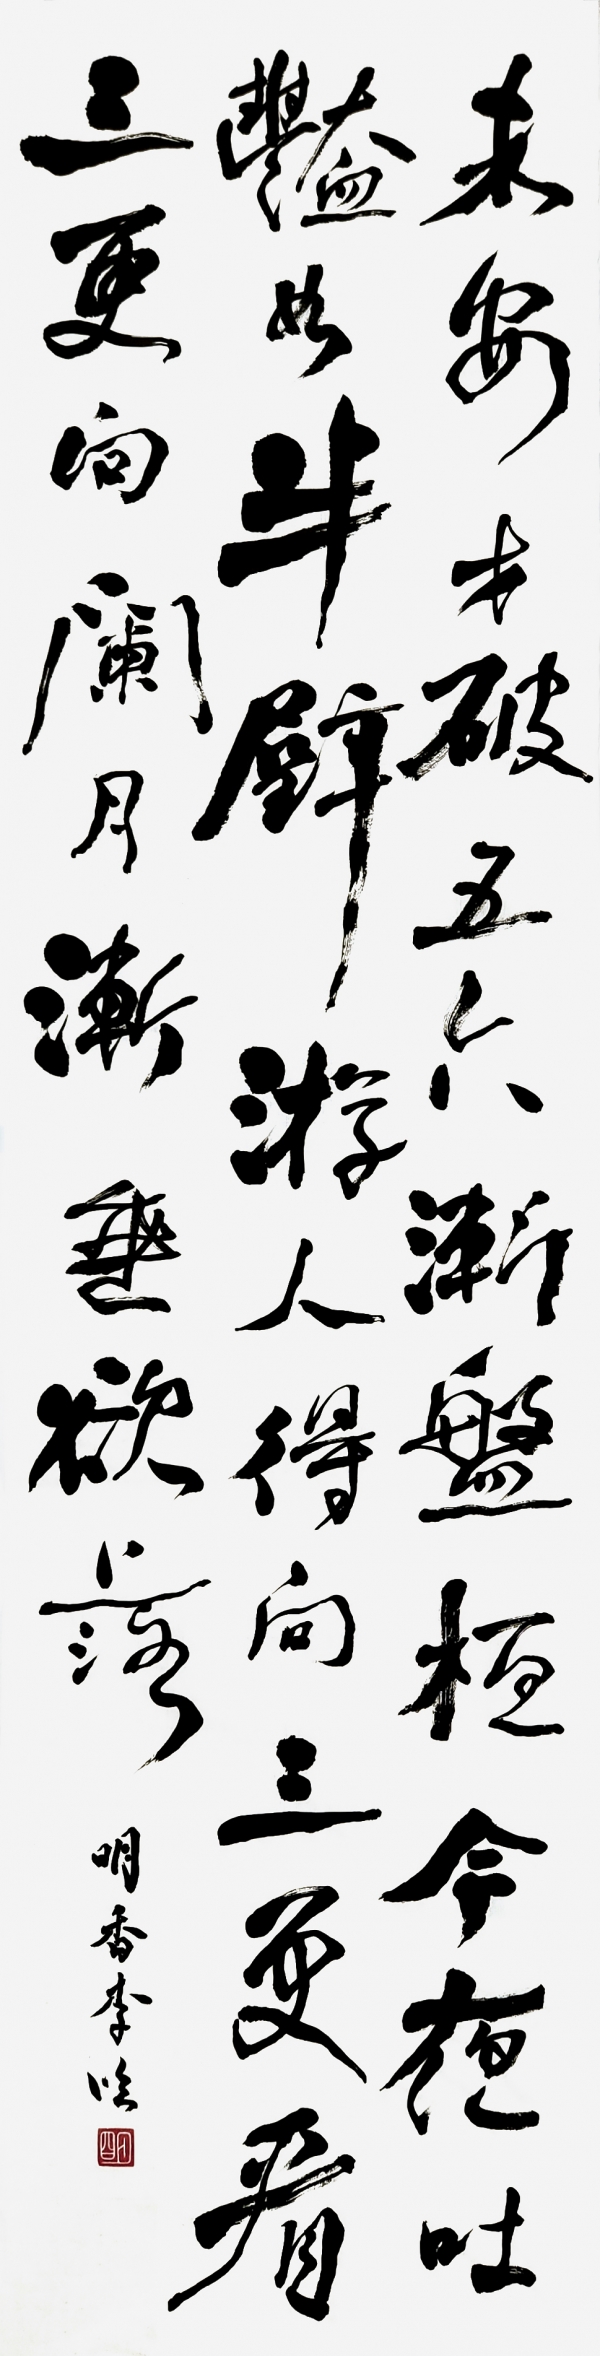 未安才破五六漸盤桓今夜吐
豔如半璧游人得向三更看
三更向闌月漸垂欲落
明香李